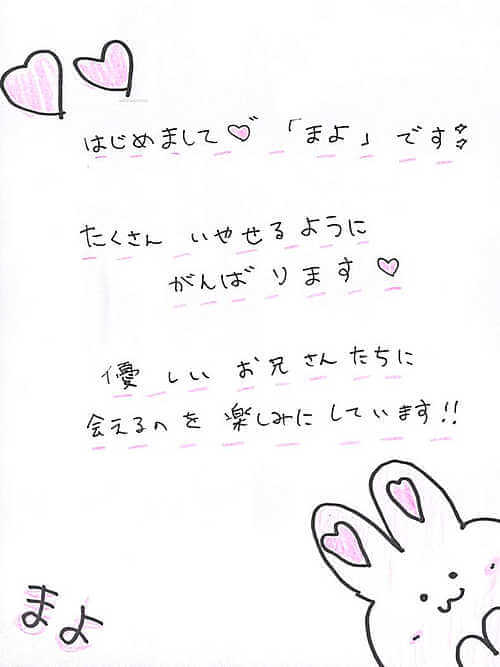 はじめまして♡「まよ」です
たくさん いやせるように
がんばります♡
優しい お兄さんたちに
会えるのを楽しみにしています!!
まよ